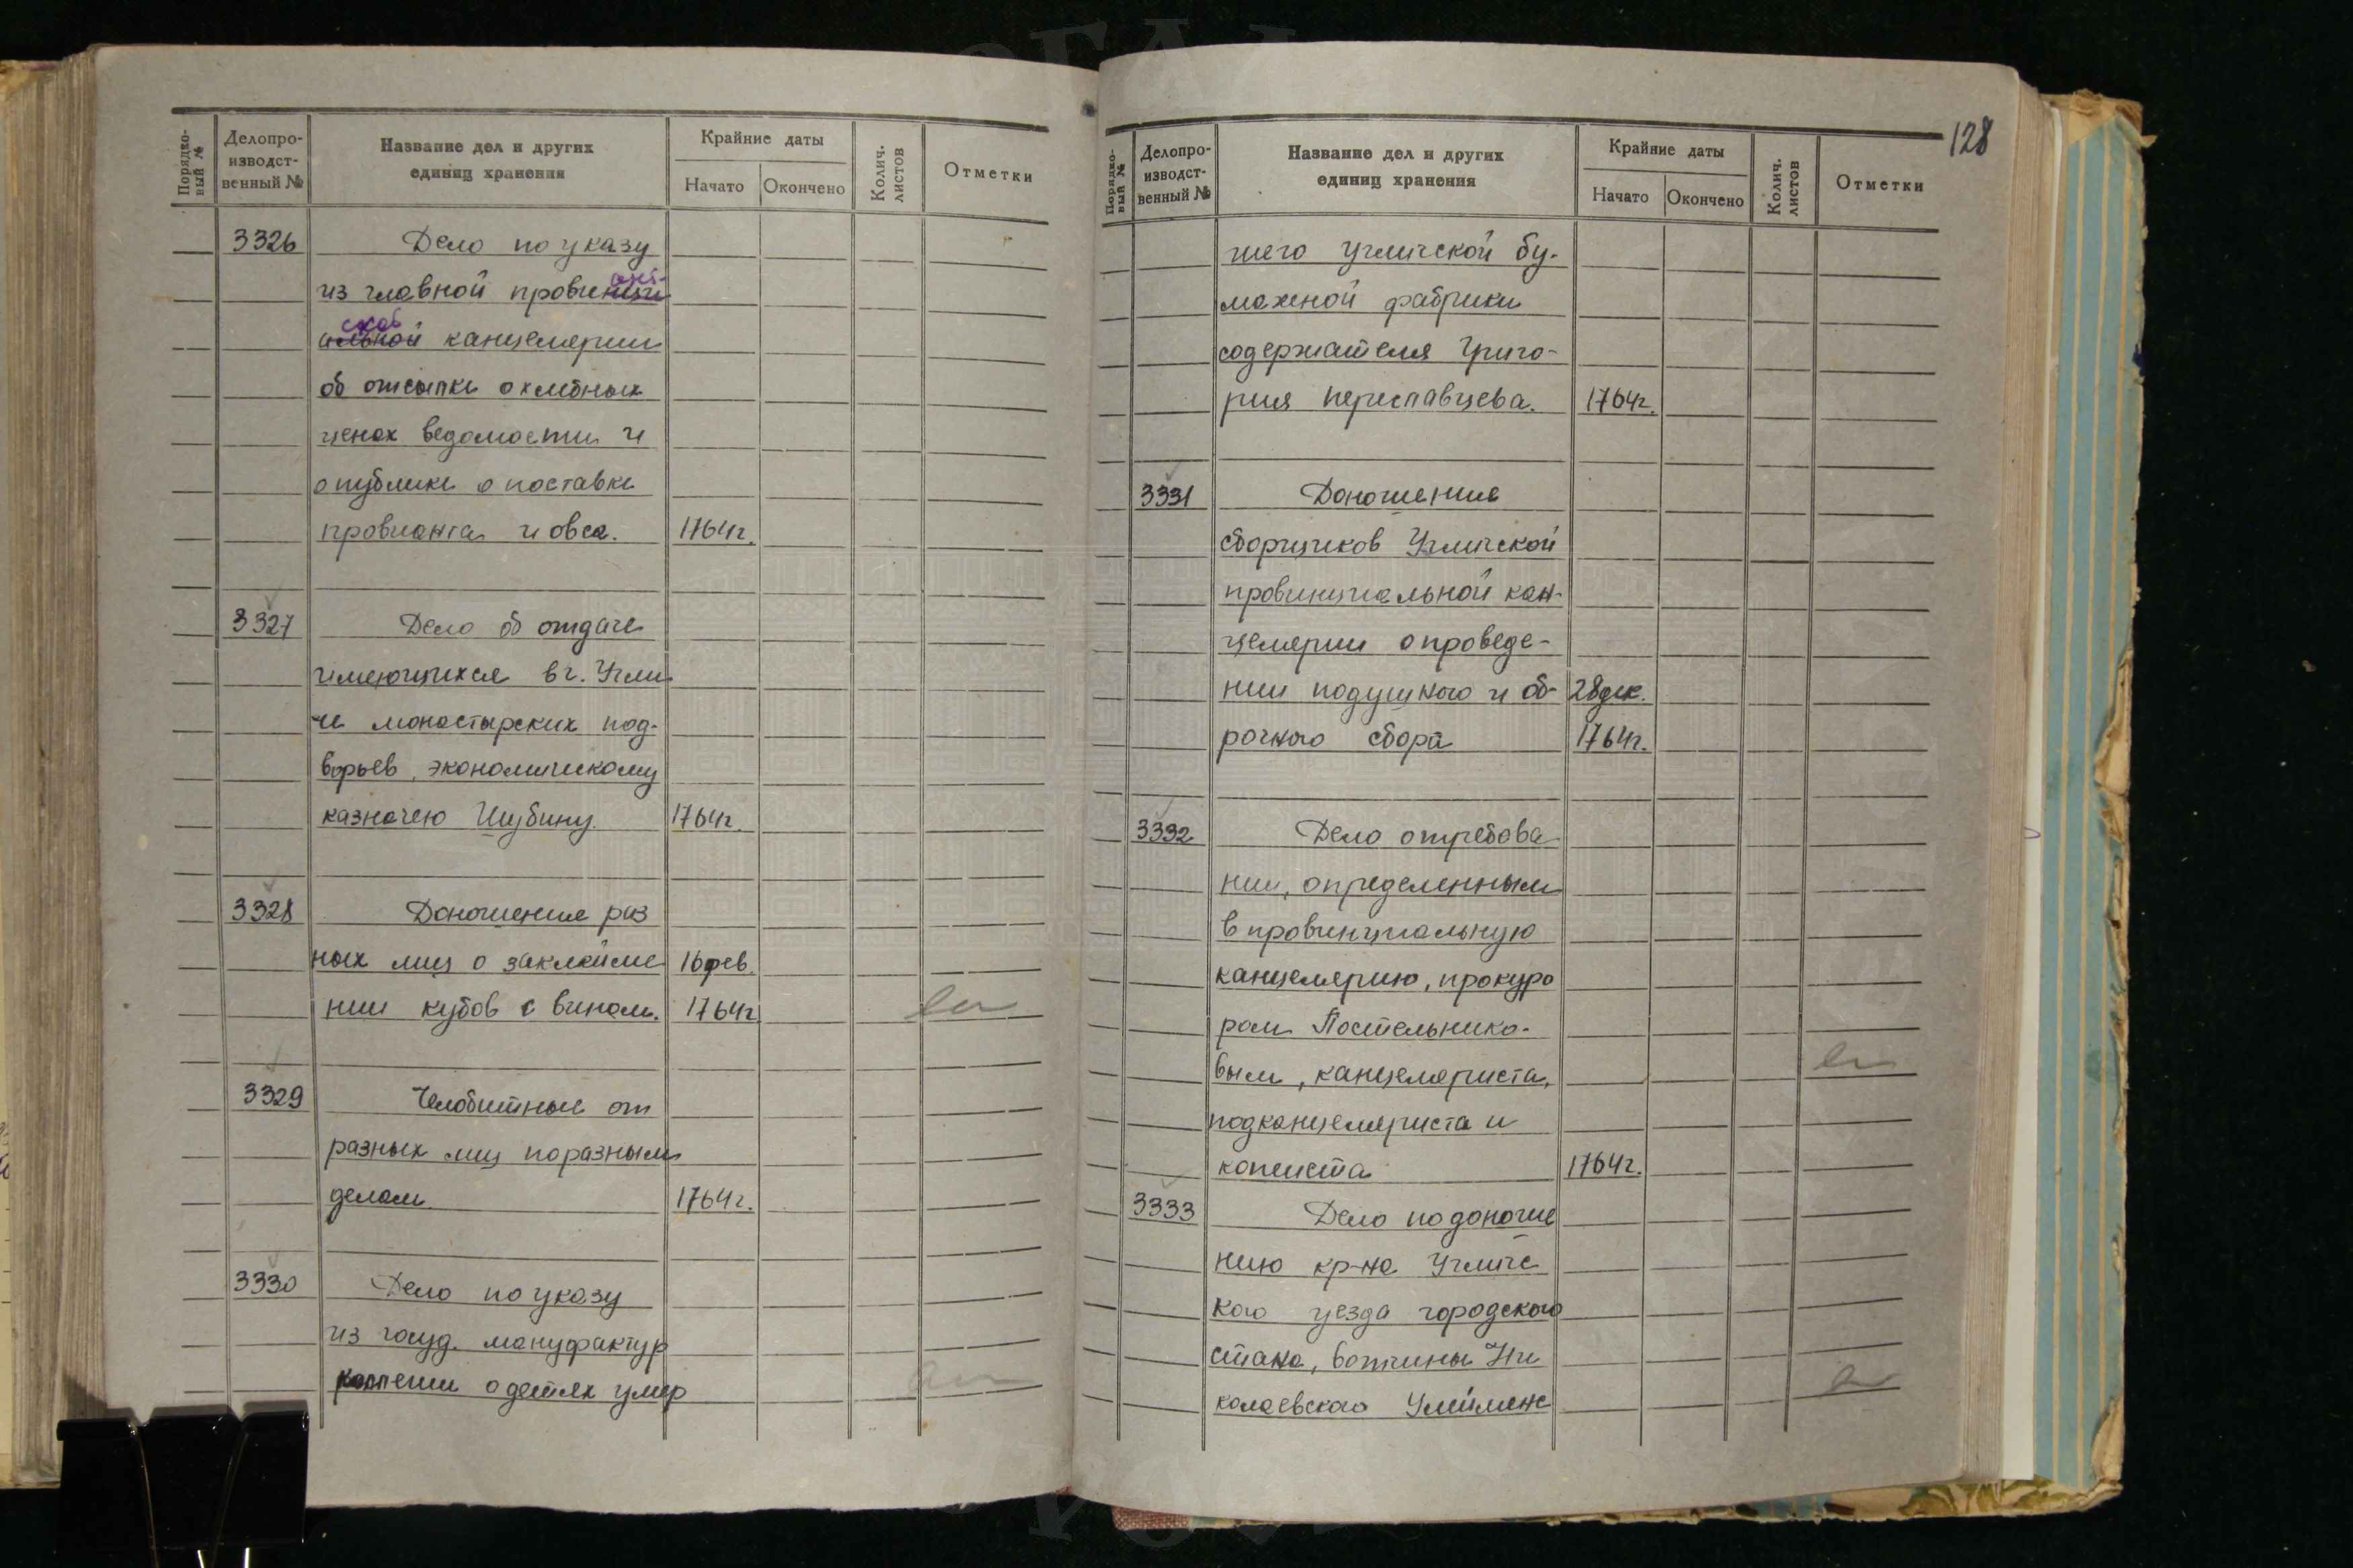 Порядко-
вый №
Делопро-
изводст-
венный №
Название дел и других
единиц хранения
Крайние даты
Начато
Окончено
Колич.
листов
Отметки
3326
Дело по указу
из главной провиант-
ской канцелярии
об отсылке о хлебных
ценах ведомости и
о публике о поставке
провианта и овса. 1764г.
3327
Дело об отдаче
имеющихся в г. Угли
че монастырских под-
ворьев, экономическому
казначею Шубину. 1764г.
3328
Доношение раз
ных лиц о заклейме 16 фев.
нии кубов с вином. 1764г
3329
Челобитные от
разных лиц по разным
делам 1764г.
3330
Дело по указу
из госуд. мануфактур
коллегии о детях умер
128
Порядко-
вый №
Делопро-
изводст-
венный №
Название дел и других
единиц хранения
Крайние даты
Начато
Окончено
Колич.
листов
Отметки
шего угличской бу-
мажной фабрики
содержателя Григо-
рия Переславцева. 1764г.
3331
Доношение
сборщиков Угличской
провинциальной кан-
целярии о проведе-
нии подушного и об- 28 дек.
рочного сбора 1764г.
3332
Дело о требова
нии, определенным
в провинциальную
канцелярию, прокуро
ром Постельнико-
вым, канцеляриста,
подканцеляриста и
кописта 1764г.
3333
Дело по доноше
нию кр-на Угличс
кого уезда городского
стана, вотчины Ни
колаевского Улейменс